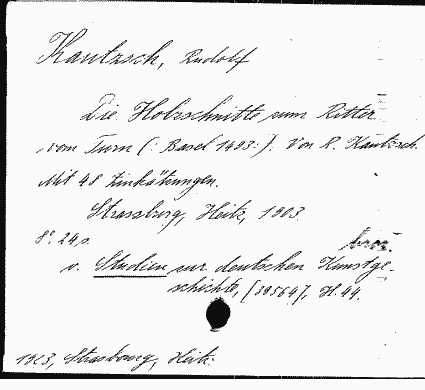 Kautzsch, Rudolf
Die Holzschnitte zum Ritter
vom Turn (: Basel 1493:). Von R. Kautzsch.
Mit 48 Zinkätzungen.
Strassburg, Heitz, 1903.
8°. 24 s. brosz.
v. Studien zur deutschen Kunstge-
schichte, [89564], H. 44.
1903, Strasbourg, Heitz.